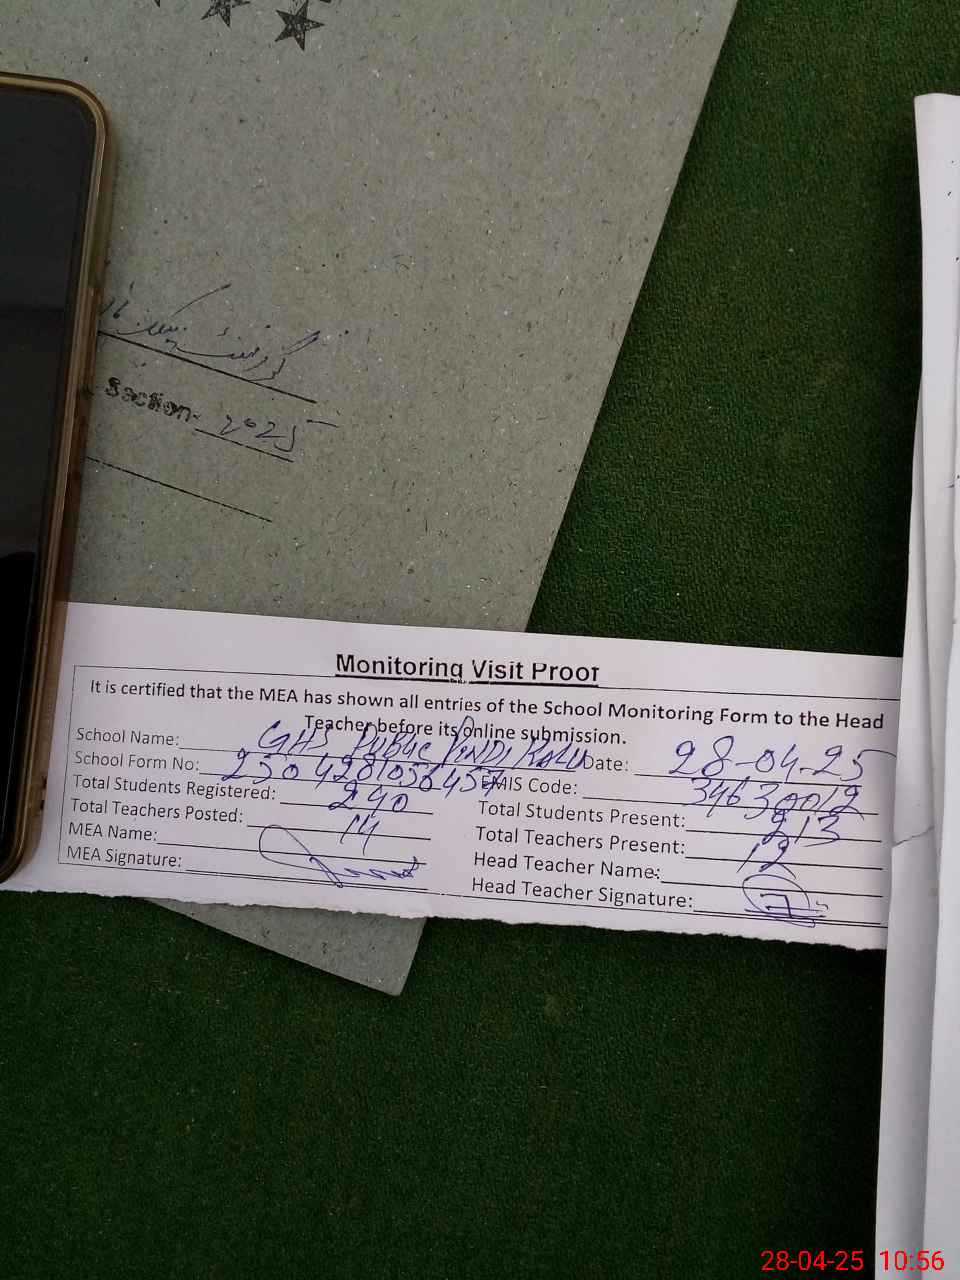 گورنمنٹ پبلک
Section- 2025
Monitoring Visit Proof
It is certified that the MEA has shown all entries of the School Monitoring Form to the Head
Teacher before its online submission.
School Name: GHS Public Pindi Kalu Date: 28-04-25
School Form No: 2504281056457 EMIS Code: 34630012
Total Students Registered: 240 Total Students Present: 213
Total Teachers Posted: 14 Total Teachers Present: 12
MEA Name: Head Teacher Name:
MEA Signature: Head Teacher Signature:
28-04-25 10:56